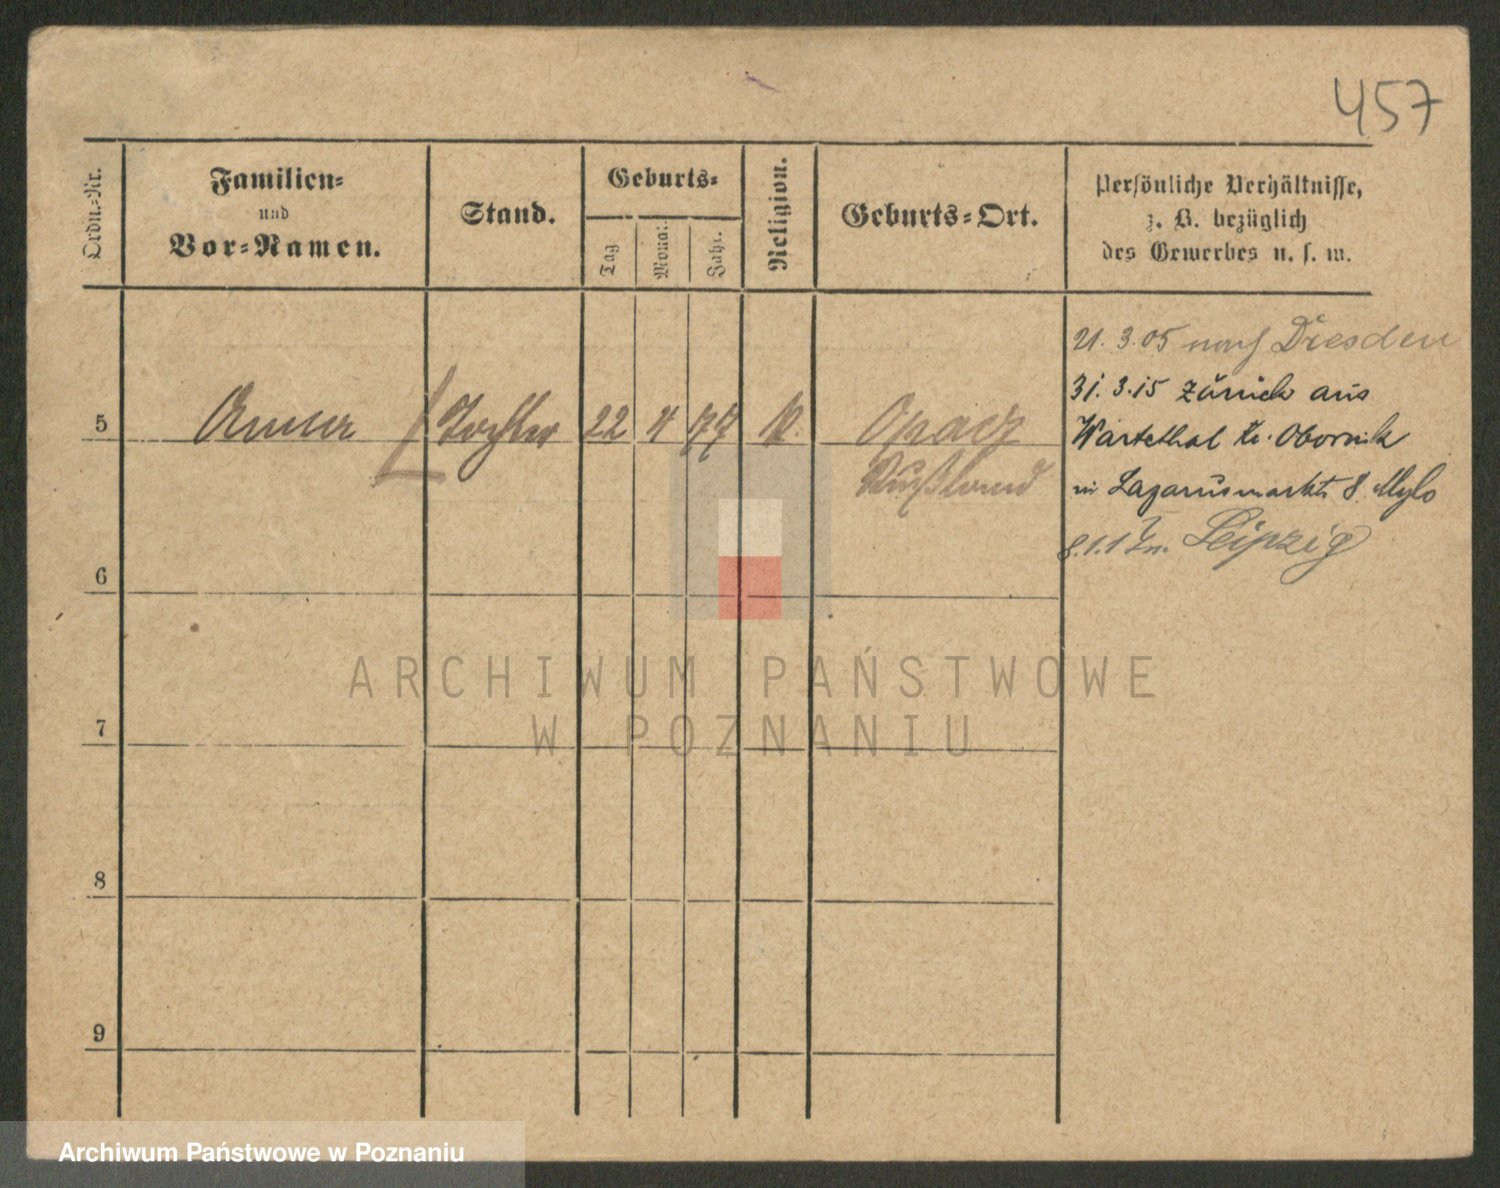 457
Ordn.-Nr.
Familien-
und
Vor-Namen.
Stand.
Geburts-
Tag
Monat
Jahr.
Religion.
Geburts-Ort.
Persönliche Verhältnisse,
z. B. bezüglich
des Gewerbes u. s. w.
21. 3. 05 nach Dresden
31. 3. 15 zurück aus
5 Anna Tochter 22 4 Opacz
Wartethal Kr. Obornik
Rußland
in Lazarusmarkt 8. Mylo
Leipzig
6
7
8
9
ARCHIWUM PAŃSTWOWE
W POZNANIU
Archiwum Państwowe w Poznaniu